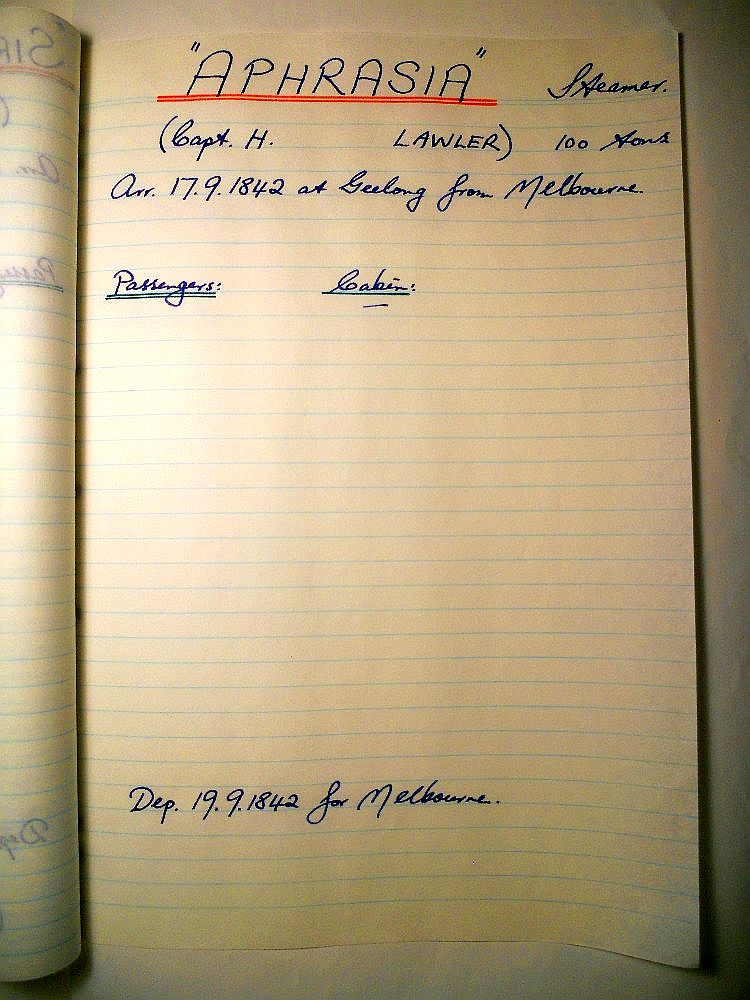 "APHRASIA" Steamer.
(Capt. H. LAWLER) 100 tons
Arr. 17.9.1842 at Geelong from Melbourne.
Passengers: Cabin:
Dep. 19.9.1842 for Melbourne.